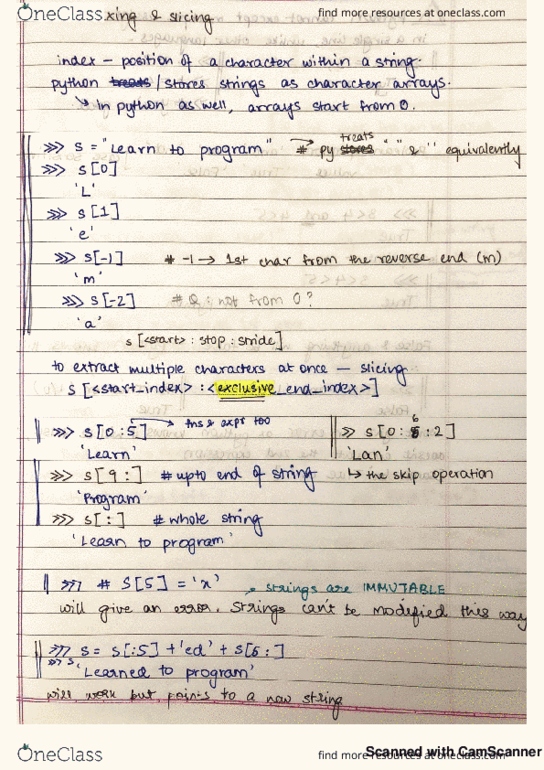 OneClass
xing & slicing
find more resources at oneclass.com
index - position of a character within a string.
python treats / stores strings as character arrays.
↳ In python as well, arrays start from 0.
>>> s = "Learn to program" → # py stores treats " " & ' ' equivalently
>>> s[0]
'L'
>>> s[1]
'e'
>>> s[-1] # -1 → 1st char from the reverse end (m)
'm'
>>> s[-2] # Q: not from 0?
'a'
s [<start> : stop : stride]
to extract multiple characters at once - slicing
s [<start_index> : <exclusive_end_index>]
>>> s[0:5] → this is expr too
'Learn'
>> s[0:6:2]
'Lan'
↳ the skip operation
>>> s[9:] # upto end of string
'Program'
>>> s[:] # whole string
'Learn to program'
>>> # s[5] = 'x' → strings are IMMUTABLE
will give an error. Strings can't be modified this way
>>> s = s[:5] + 'ed' + s[5:]
>>> s
'Learned to program'
will work but points to a new string
OneClass
find more resources at oneclass.com
Scanned with CamScanner